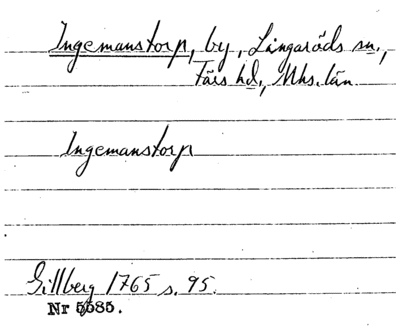 Ingemanstorp, by, Långaröds sn.,
Färs hd., Mhs. län
Ingemanstorp
Gillberg 1765 s. 95.
Nr 5585.